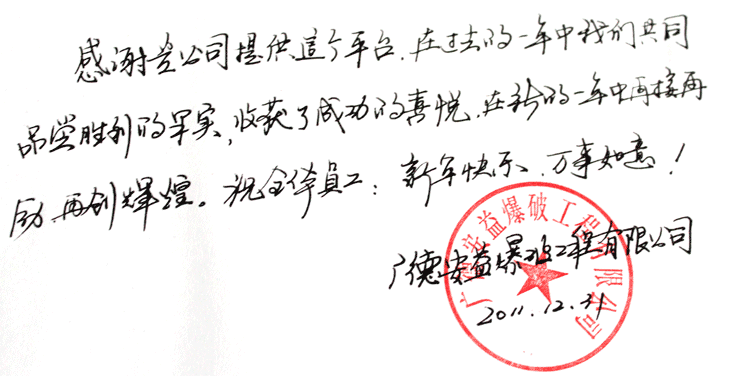 感谢贵公司提供这个平台.在过去的一年中我们共同
品尝胜利的果实,收获了成功的喜悦,在新的一年中再接再
励,再创辉煌。祝全体员工:新年快乐、万事如意!
广德安益爆破工程有限公司
广德安益爆破工程有限公司
2011.12.31